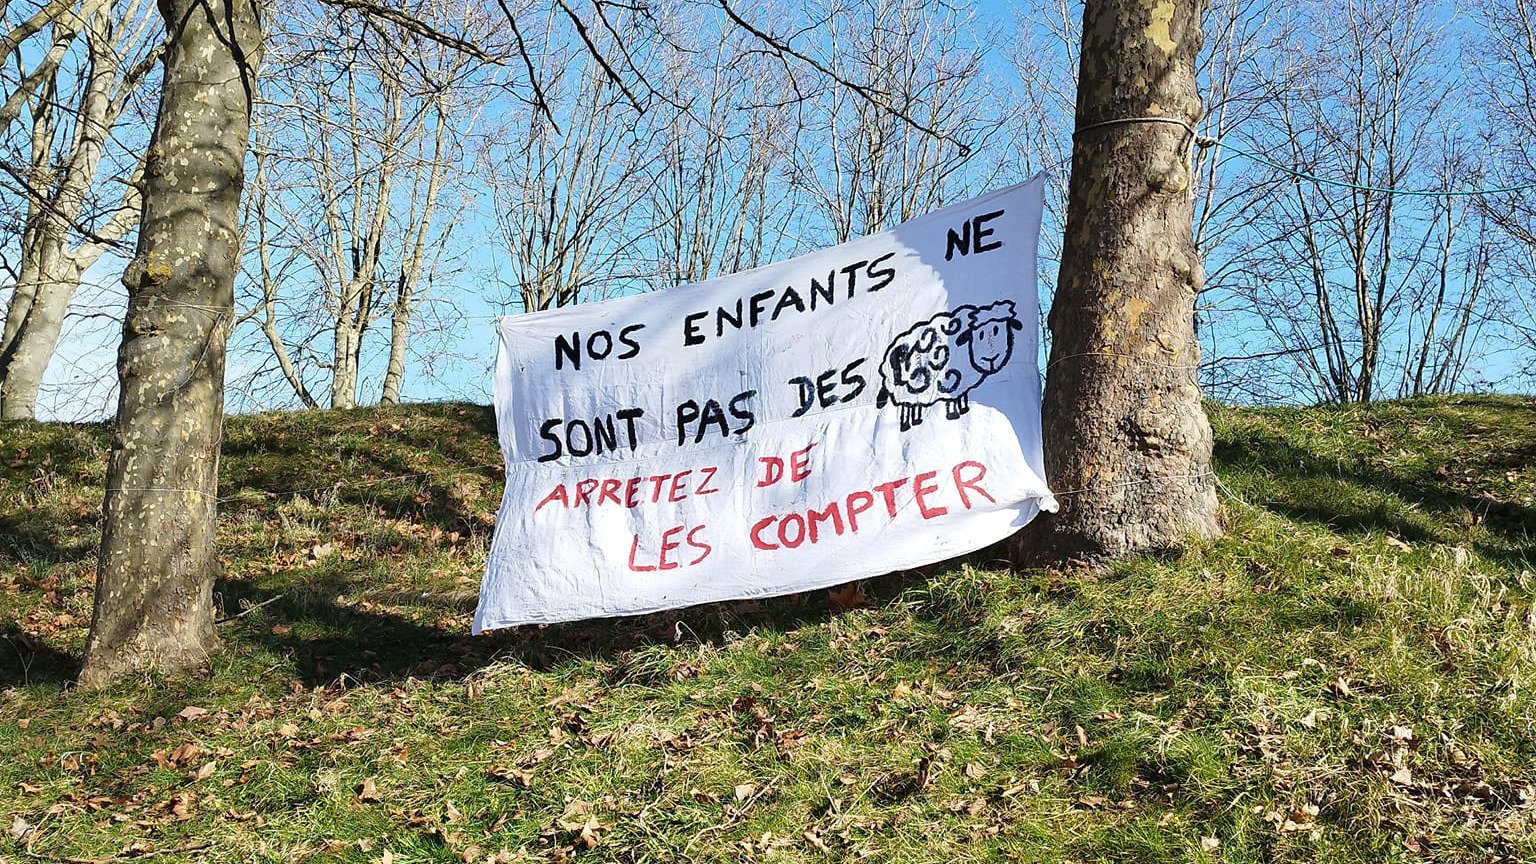 NOS ENFANTS NE
SONT PAS DES
ARRETEZ DE
LES COMPTER